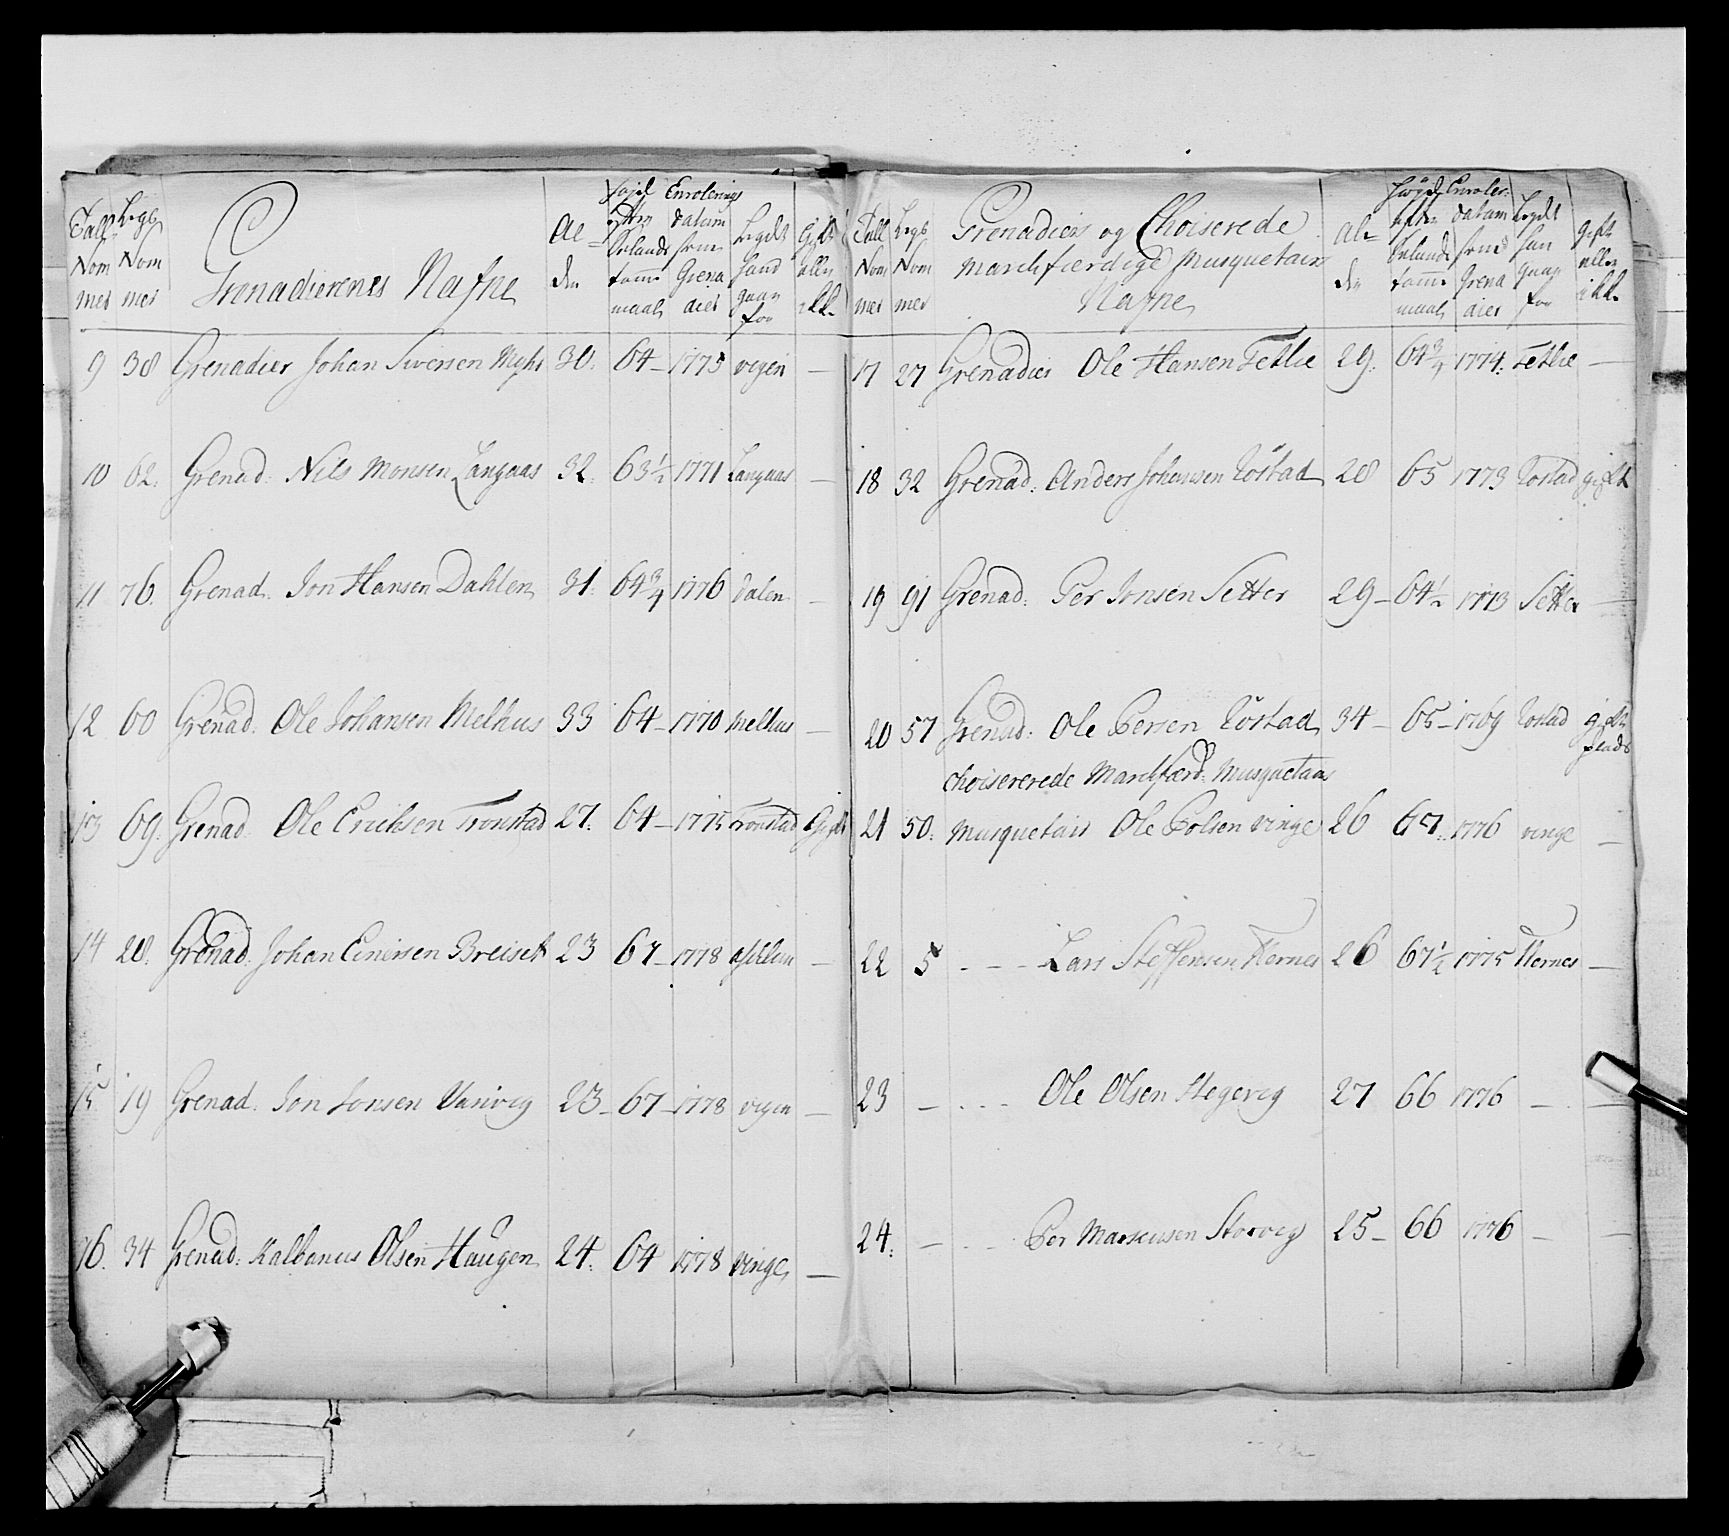 Tall Nommer | Legs Nommer | Grenadierenes Nafne | Alderen | Højd efter Selands tomme maal | Enrolerings datum som Grenadier | Legdet hand gaar for | Gift eller ikke
9 38 Grenadier Johan Siversen Myhr 30. 64 – 1775 vegen –
10 62. Grenad. Nils Monsen Langaas 32. 63½ 1771 Langaas –
11 76. Grenad. Jon Hansen Dahlen 31. 64¾ 1776 Dalen –
12 60 Grenad. Ole Johansen Melhus 33 64 – 1770 Melhus –
13 69. Grenad. Ole Erichsen Tronstad 27. 64 – 1775 Tronstad Gift
14 28. Grenad. Johan Einersen Breisek 23 67 – 1778 –
15 19 Grenad. Jon Jonsen Vanvig 23 – 67 – 1778 vegen –
16. 34 Grenad. Kalbanus Olsen Haugen 24. 64 1778 Vinge –
Tall Nommer | Legs Nommer | Grenadiers og Choiserede Marchfærdige Musquetairs Nafne | Alderen | Højd efter Selands tomme maal | Enroler. datum som Grenadier | Legdet han gaar for | gift eller ikke
17 27 Grenadier Ole Hansen Tetlie 29. 64¾ 1774. Tetlie –
18 32 Grenad. Anders Johansen Röstad 28 65 1773 Rostad gift
19 91 Grenad. Per Jonsen Setter 29 – 64½ 1773 Setter –
20 57 Grenad. Ole Persen Röstad 34 – 65 – 1769 Rostad gift
choisererede Marchfærd. Musquetairs
21 50. Musquetair Ole Polsen Vinge 26 67. 1776 vinge –
22 5 – – – Lars Steffensen Hernes 26 67½ 1775 Hernes –
23 – – – – Ole Olsen Hegevig 27 66 1776 – –
24. – – – Per Markusen Storvig 25 – 66 1776 – –